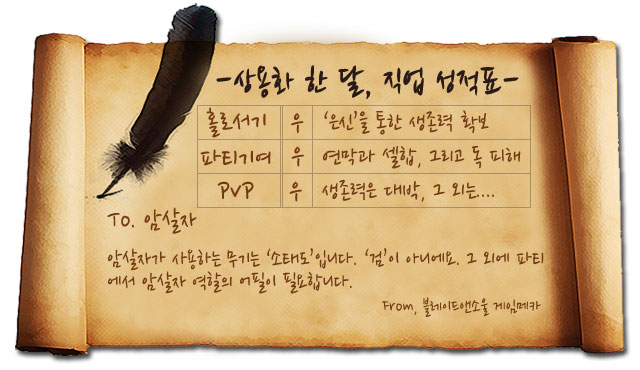 -상용화 한 달, 직업 성적표-
홀로서기 우 '은신'을 통한 생존력 확보
파티기여 우 연막과 셀합, 그리고 독 피해
PvP 우 생존력은 대박, 그 외는....
To. 암살자
암살자가 사용하는 무기는 '소태도'입니다. '검'이 아니에요. 그 외에 파티
에서 암살자 역할의 어필이 필요합니다.
From, 블레이드앤소울 게임메카